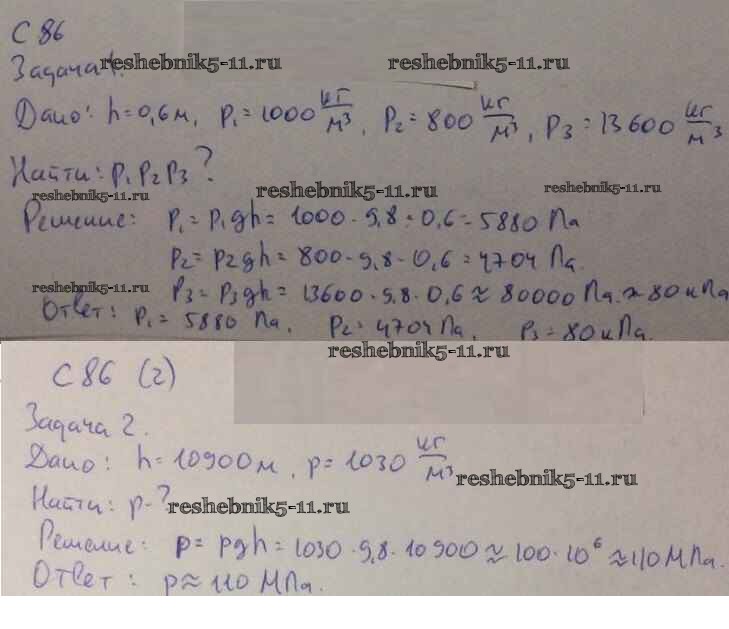 С 86
Задача 1.
reshebnik5-11.ru reshebnik5-11.ru
Дано: h=0,6м, ρ₁=1000 кг/м³, ρ₂=800 кг/м³, ρ₃=13600 кг/м³
Найти: p₁ p₂ p₃ ?
reshebnik5-11.ru reshebnik5-11.ru reshebnik5-11.ru
Решение: p₁=ρ₁gh=1000·9,8·0,6=5880 Па
p₂=ρ₂gh=800·9,8·0,6=4704 Па.
reshebnik5-11.ru
p₃=ρ₃gh=13600·9,8·0,6≈80000 Па≈80кПа
Ответ: p₁=5880 Па, p₂=4704Па, p₃=80кПа.
reshebnik5-11.ru
С 86 (2)
Задача 2.
Дано: h=10900м, ρ=1030 кг/м³
reshebnik5-11.ru
Найти: p-?
reshebnik5-11.ru
Решение: p=ρgh=1030·9,8·10900≈100·10⁶≈110МПа.
Ответ: p≈110МПа.